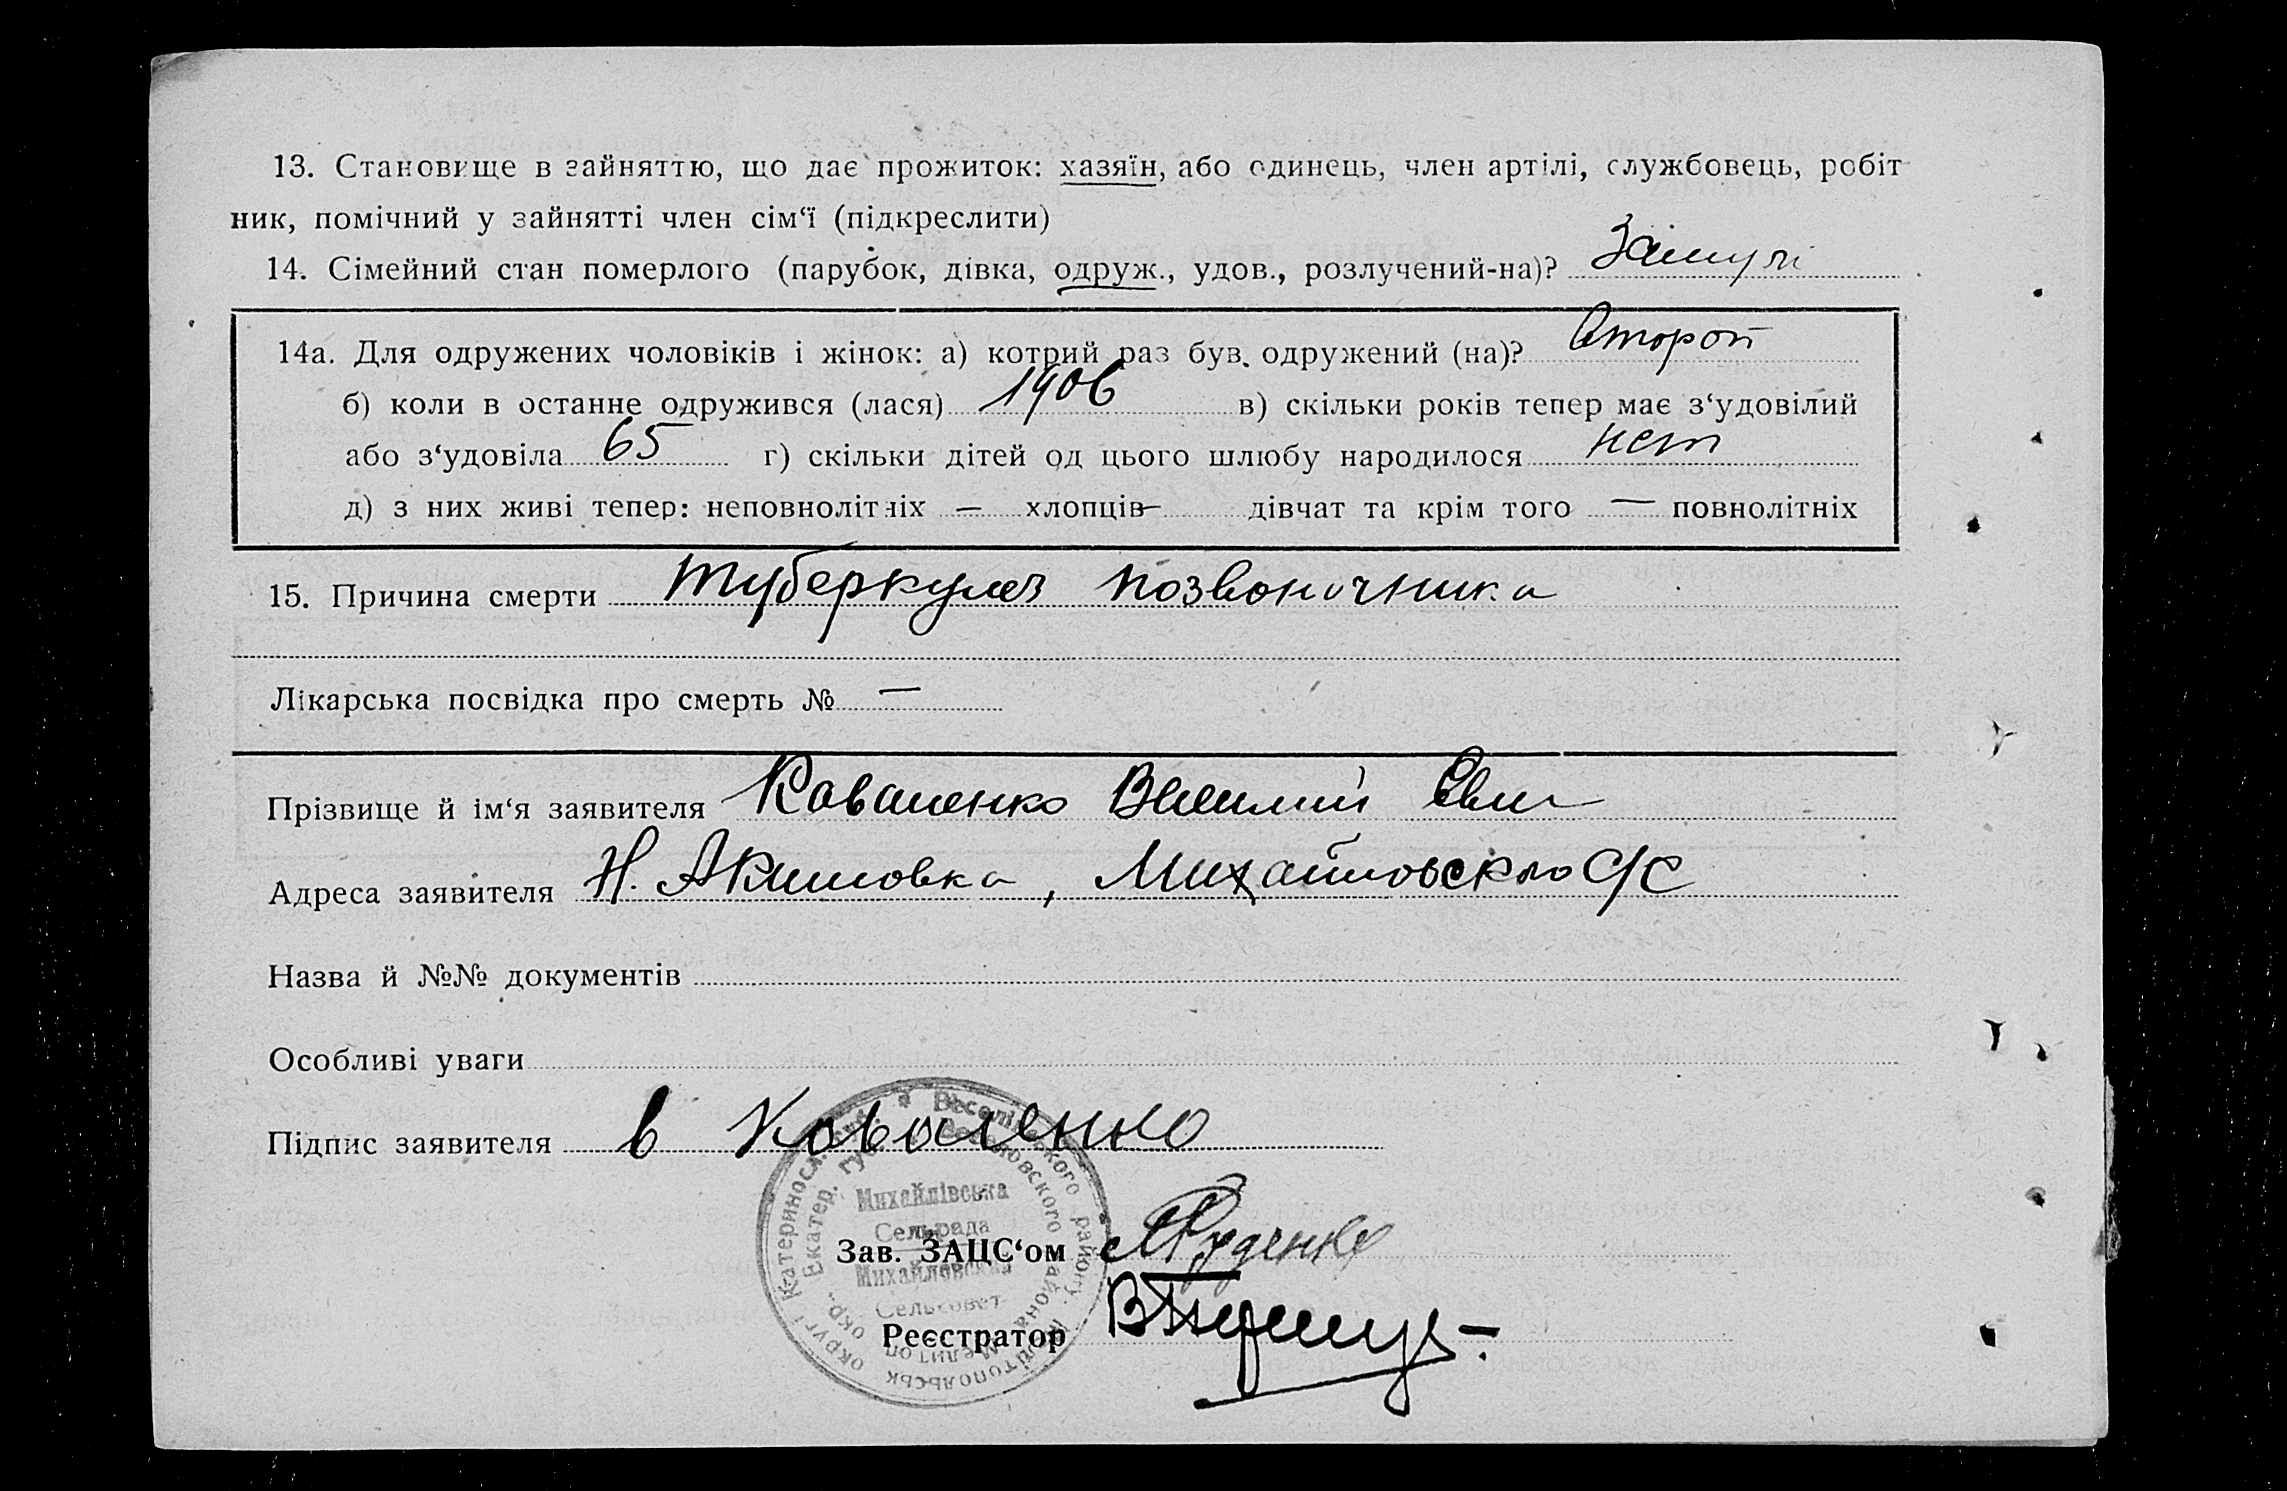 13. Становище в зайняттю, що дає прожиток: хазяїн, або одинець, член артілі, службовець, робіт
ник, помічний у зайнятті член сім‘ї (підкреслити)
14. Сімейний стан померлого (парубок, дівка, одруж., удов., розлучений-на)?
14а. Для одружених чоловіків і жінок: а) котрий раз був. одружений (на)? Второй
б) коли в останне одружився (лася) 1906 в) скільки років тепер має з‘удовілий
або з‘удовіла 65 г) скільки дітей од цього шлюбу народилося нет
д) з них живі тепер: неповнолітніх — хлопців — дівчат та крім того — повнолітніх
15. Причина смерти туберкулез позвоночника
Лікарська посвідка про смерть № —
Прізвище й ім‘я заявителя Коваленко Василий
Адреса заявителя Н. Акимовка, Михайловского С/С
Назва й №№ документів
Особливі уваги
Підпис заявителя В Коваленко
Катеринославск. Веселівського району. Мелітопольськ округи
Екатер. губ. Веселовского района Мелитоп окр.
Михайлівська
Сельрада
Михайловский
Сельсовет
Зав. ЗАЦС‘ом Руденко
Реєстратор